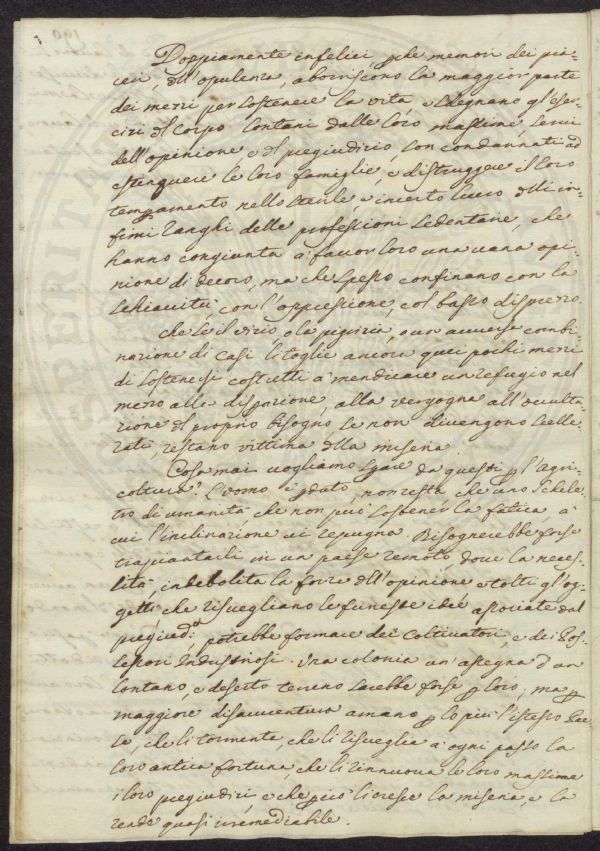 Doppiamente infelici pche memori dei pia=
ceri, dell'opulenza, aboriscono la maggior parte
dei mezzi per sostenere la vita, e sdegnano gl'eser=
cizi del corpo lontani dalle loro massime, servi
dell'opinione, e del pregiudizio, son condannati ad
estinguere le loro famiglie, e distruggere il loro
tempamento nello sterile e incerto lucro delli in=
fimi ranghi delle professioni sedentarie, che
hanno congiunta a favor loro una vana opi=
nione di decoro, ma che spesso confinano con la
schiavitù, con l'oppressione, col basso disprezzo.
che se il vizio, o la pigrizia, o un avversa combi=
nazione di casi li toglie ancora quei pochi mezzi
di sostenersi costretti a mendicare un refugio nel
mezzo alla disperazione, alla vergogna all'occulta=
zione del proprio bisogno se non divengono scelle=
rati restano vittima della miseria.
Cosa mai vogliamo sperare da questi p l'agri=
coltura? L'uomo è pduto, non resta che uno schele=
tro di umanità che non può sostener la fatica a
cui l'inclinazione vi repugna. Bisognerebbe forse
traspiantarli in un paese remoto, dove la neces=
sità, indebolita la forza dell'opinione e tolti gl'og=
getti che risvegliano le funeste idee associate dal
pregiud.o potrebbe formare dei Coltivatori, e dei Pos=
sessori Industriosi. Una colonia un assegna d'un
lontano, e deserto terreno sarebbe forse p loro; ma p
maggiore disavventura amano p lo più l'istesso Pae=
se, che li tormenta, che li risveglia a ogni passo la
loro antica fortuna, che li rinnuova le loro massime
i loro pregiudizi e che pciò li cresce la miseria, e la
rende quasi irremediabile.